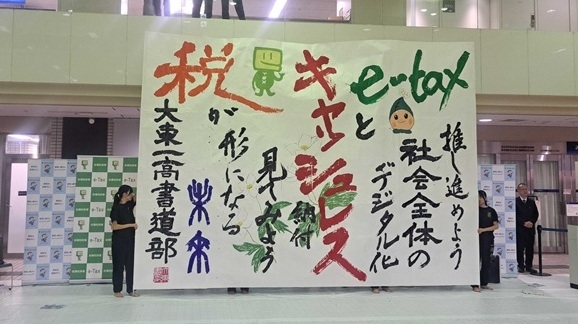 推し進めよう
社会全体の
デジタル化
e-tax
と
キャッシュレス
納付
見てみよう
税
が形になる
未来
大東一高書道部